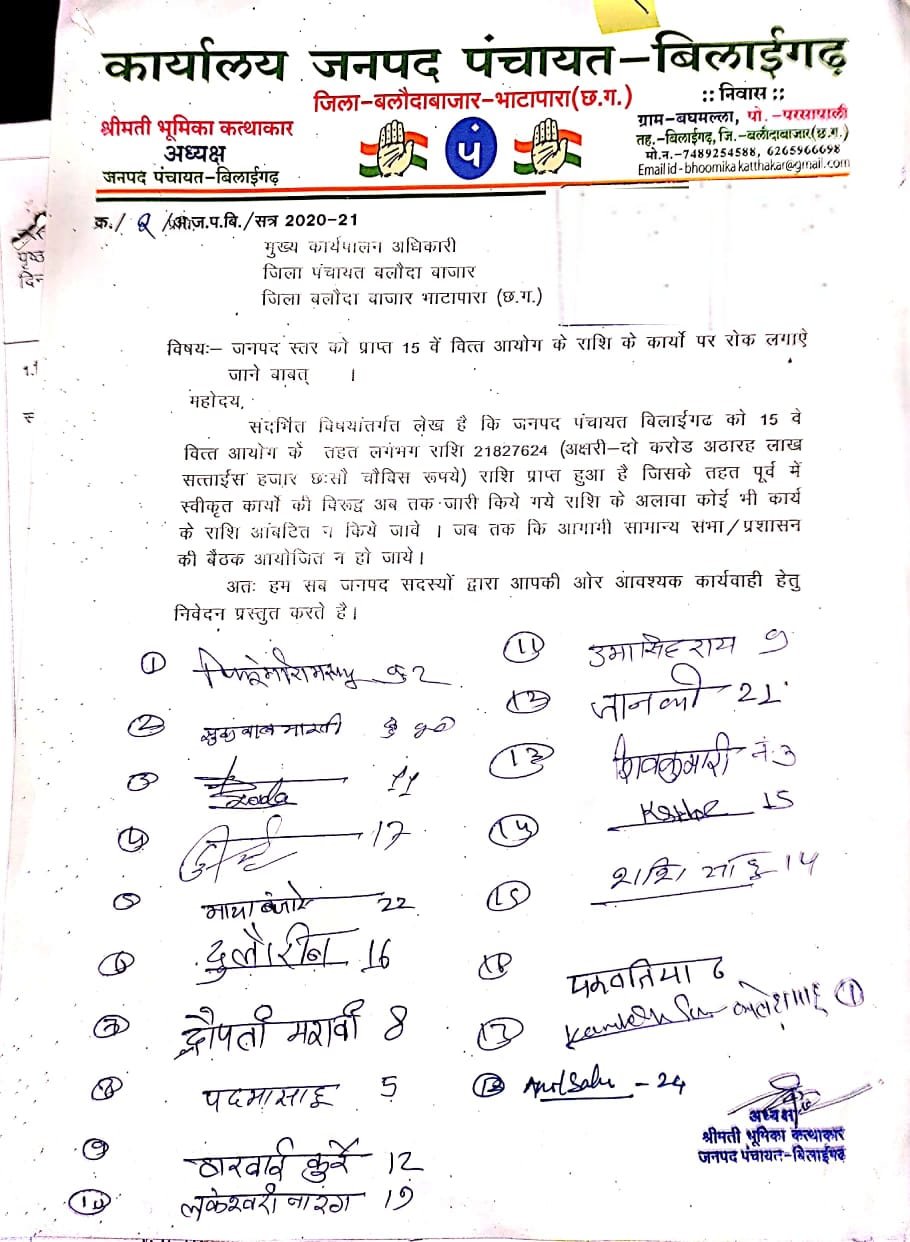 कार्यालय जनपद पंचायत–बिलाईगढ़
जिला–बलौदाबाजार–भाटापारा(छ.ग.)
:: निवास ::
श्रीमती भूमिका कत्थाकार
अध्यक्ष
जनपद पंचायत–बिलाईगढ़
पं
ग्राम–बघमल्ला, पो.–परसापाली
तह.–बिलाईगढ़, जि.–बलौदाबाजार(छ.ग.)
मो.न.–7489254588, 6265966698
Email id - bhoomika katthakar@gmail.com
क्र./ 2 /अ.ज.प.बि./सत्र 2020-21
मुख्य कार्यपालन अधिकारी
जिला पंचायत बलौदा बाजार
जिला बलौदा बाजार भाटापारा (छ.ग.)
विषयः– जनपद स्तर को प्राप्त 15 वें वित्त आयोग के राशि के कार्यो पर रोक लगाऐ
जाने बाबत् ।
महोदय,
संदर्भित विषयांतर्गत लेख है कि जनपद पंचायत बिलाईगढ को 15 वे
वित्त आयोग कें तहत लगंभग राशि 21827624 (अक्षरी–दो करोड अठारह लाख
सत्ताईस हजार छःसौ चौविस रूपये) राशि प्राप्त हुआ है जिसके तहत पूर्व में
स्वीकृत कार्यो की विरूद्व अब तक जारी किये गये राशि के अलावा कोई भी कार्य
के राशि आंबटित न किये जावे । जब तक कि आगामी सामान्य सभा/प्रशासन
की बैठक आयोजित न हो जाये।
अतः हम सब जनपद सदस्यों द्वारा आपकी ओर आवश्यक कार्यवाही हेतु
निवेदन प्रस्तुत करते है।
1
2
3 11
4 17
5 माया बंजारे 22
6 दुलौरीन 16
7 द्रौपती मरावी 8
8 पदमा साहू 5
9 कुर्रे 12
10 लकेश्वरी नारंग 19
11 उमा सिह राय 9
12 जानकी 21
13 शिवकुमारी नं. 3
14 15
15 शशि साहू 14
16
17 1
18 Anil Sahu - 24
अध्यक्ष
श्रीमती भूमिका कत्थाकार
जनपद पंचायत-बिलाईगढ़